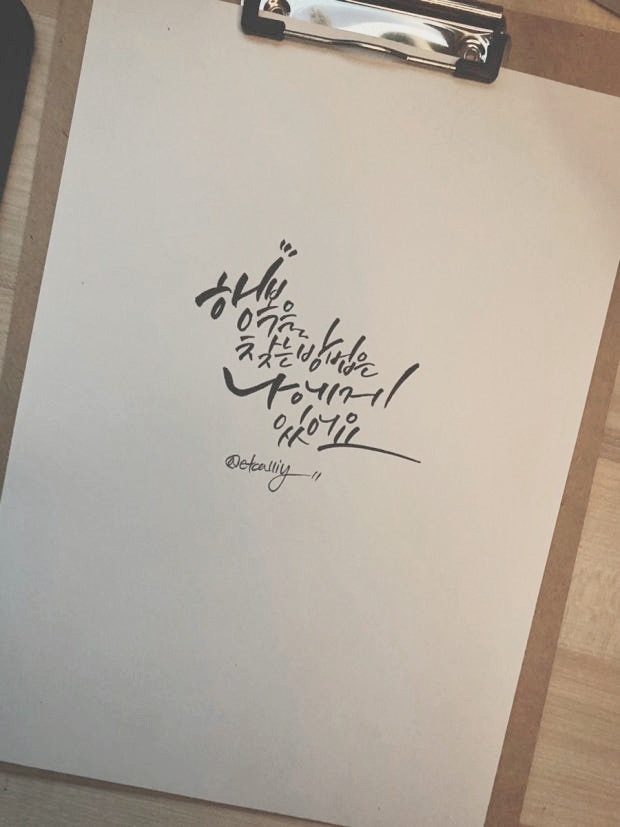 행복을
찾는 방법은
나에게
있어요
@etcalliy